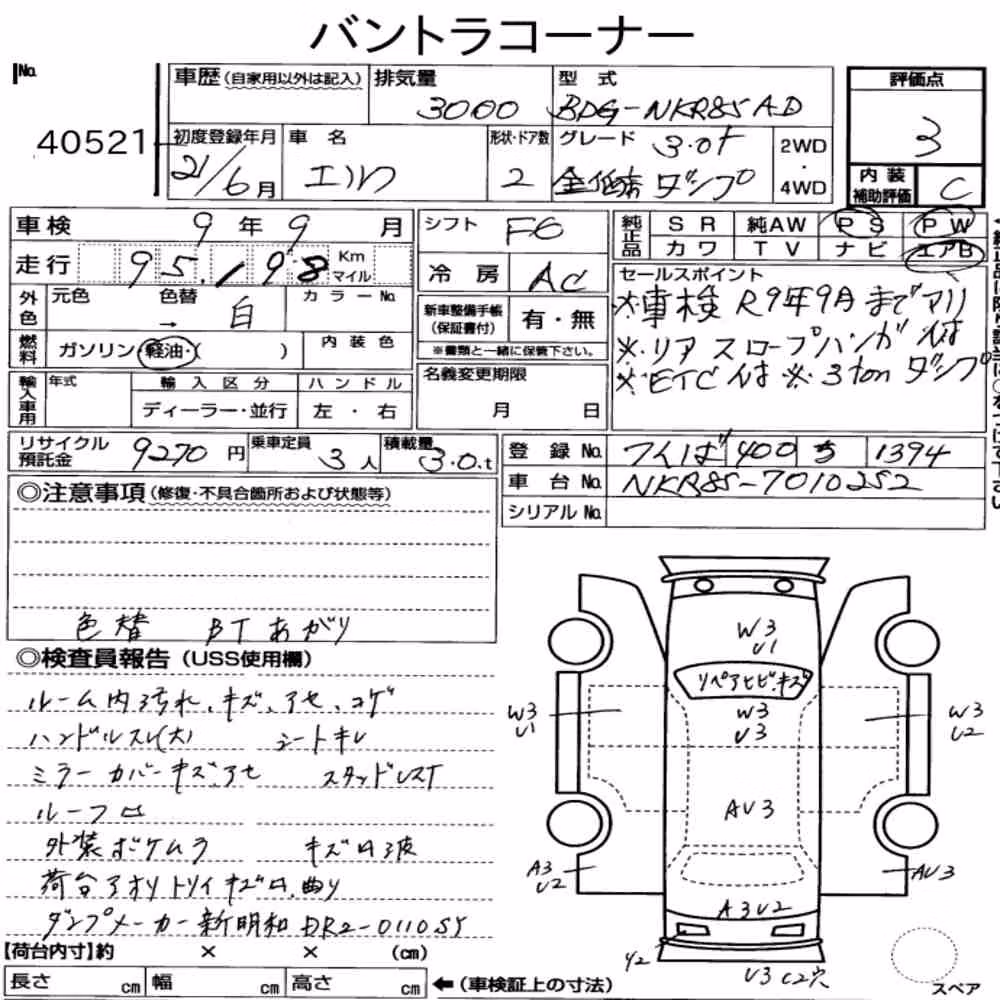 バントラコーナー
No.
40521
車歴 (自家用以外は記入)
排気量
3000
型式
BDG-NKR85AD
評価点
3
初度登録年月
21/6月
車名
エルフ
形状・ドア数
2
グレード
3.0t
全低床 ダンプ
2WD
・
4WD
内装
補助評価
C
車検 9年9月
シフト F6
純正品
SR 純AW PS PW
カワ TV ナビ エアB
走行 95,198 Km
マイル
冷房 AC
セールスポイント
※車検 R9年9月までアリ
※リアスロープハンガんは
※ETCんは ※3ton ダンプ
外色
元色 色替 カラーNo.
→ 白
新車整備手帳
(保証書付)
有・無
※書類と一緒に保管下さい。
燃料
ガソリン・軽油・( )
内装色
名義変更期限
月 日
輸入車用
年式
輸入区分
ハンドル
ディーラー・並行
左・右
リサイクル
預託金
9270円
乗車定員
3人
積載量
3.0t
登録No. つくば 400 ち 1394
車台No. NKR85-7010252
シリアルNo.
◎注意事項 (修復・不具合箇所および状態等)
色替 BTあがり
◎検査員報告 (USS使用欄)
ルーム内汚れ、キズ、アセ、コゲ
ハンドルスレ(大) シートキレ
ミラーカバーキズ、アセ スタッドレスT
ルーフロ
外装ボケムラ キズ凹波
荷台アオリトリイキズ凹、曲り
ダンプメーカー新明和 DR2-0110SY
【荷台内寸】約 × × (cm)
長さ cm 幅 cm 高さ cm
←(車検証上の寸法)
W3
U1
リペアヒビ、キズ
W3
U3
W3
U1
W3
U2
AU3
A3
U2
AU3
A3U2
Y2
U3 C2穴
スペア